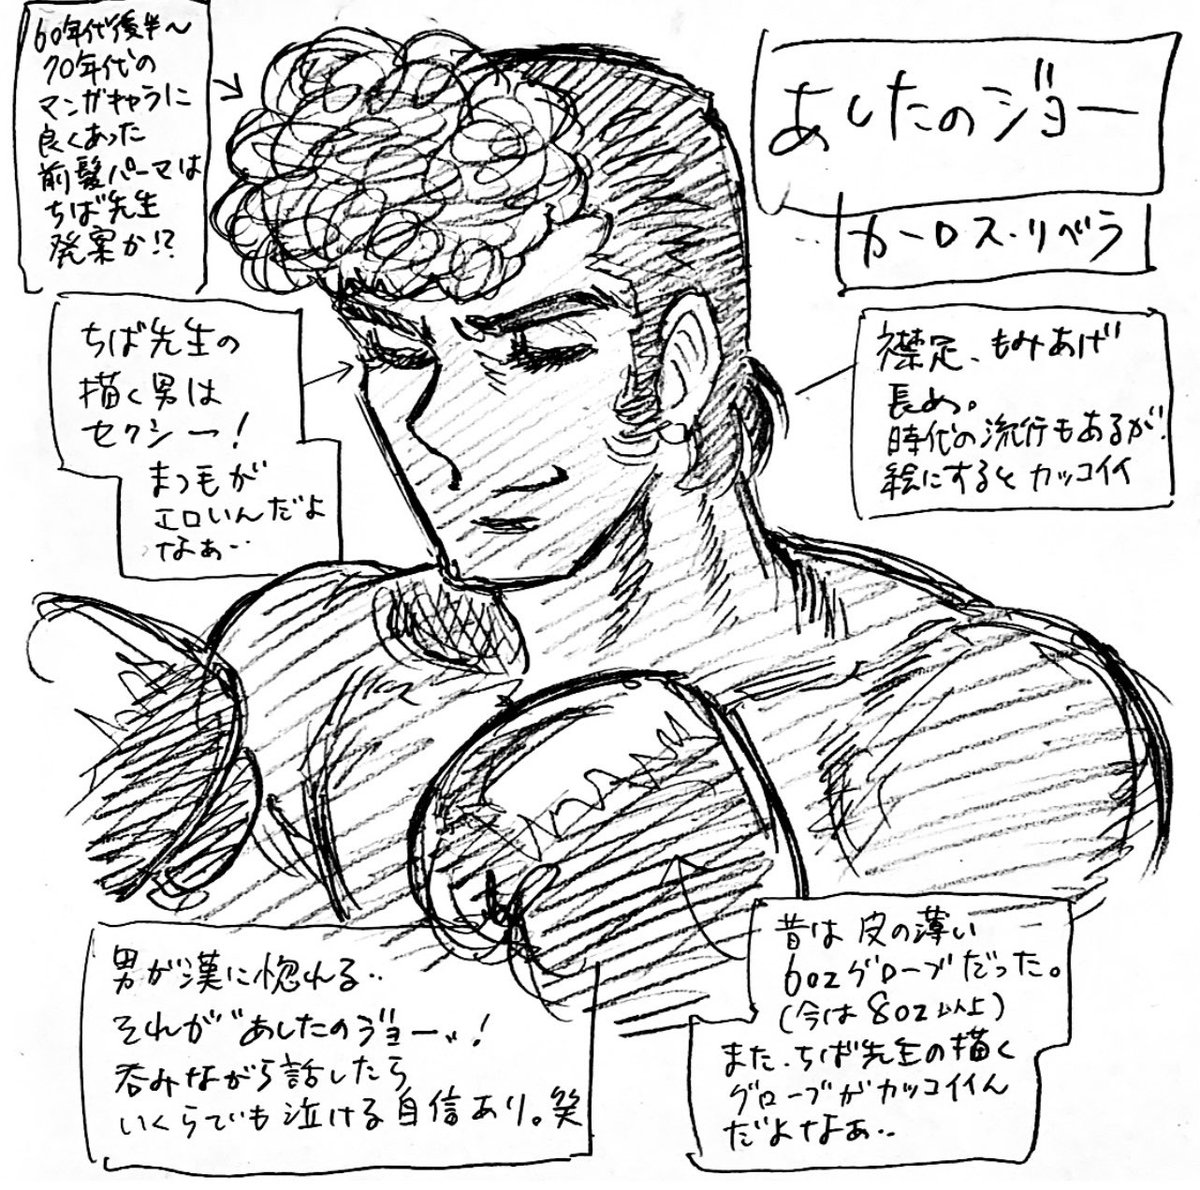 あしたのジョー
カーロス・リベラ
60年代後半〜
70年代の
マンガキャラに
良くあった
前髪パーマは
ちば先生
発案か!?
ちば先生の
描く男は
セクシー!
まつ毛が
エロいんだよ
なぁ..
襟足、もみあげ
長め。
時代の流行もあるが!
絵にするとカッコイイ
男が漢に惚れる..
それが"あしたのジョー"!
呑みながら話したら
いくらでも泣ける自信あり。笑
昔は皮の薄い
6ozグローブだった。
(今は8oz以上)
また、ちば先生の描く
グローブがカッコイイん
だよなぁ..